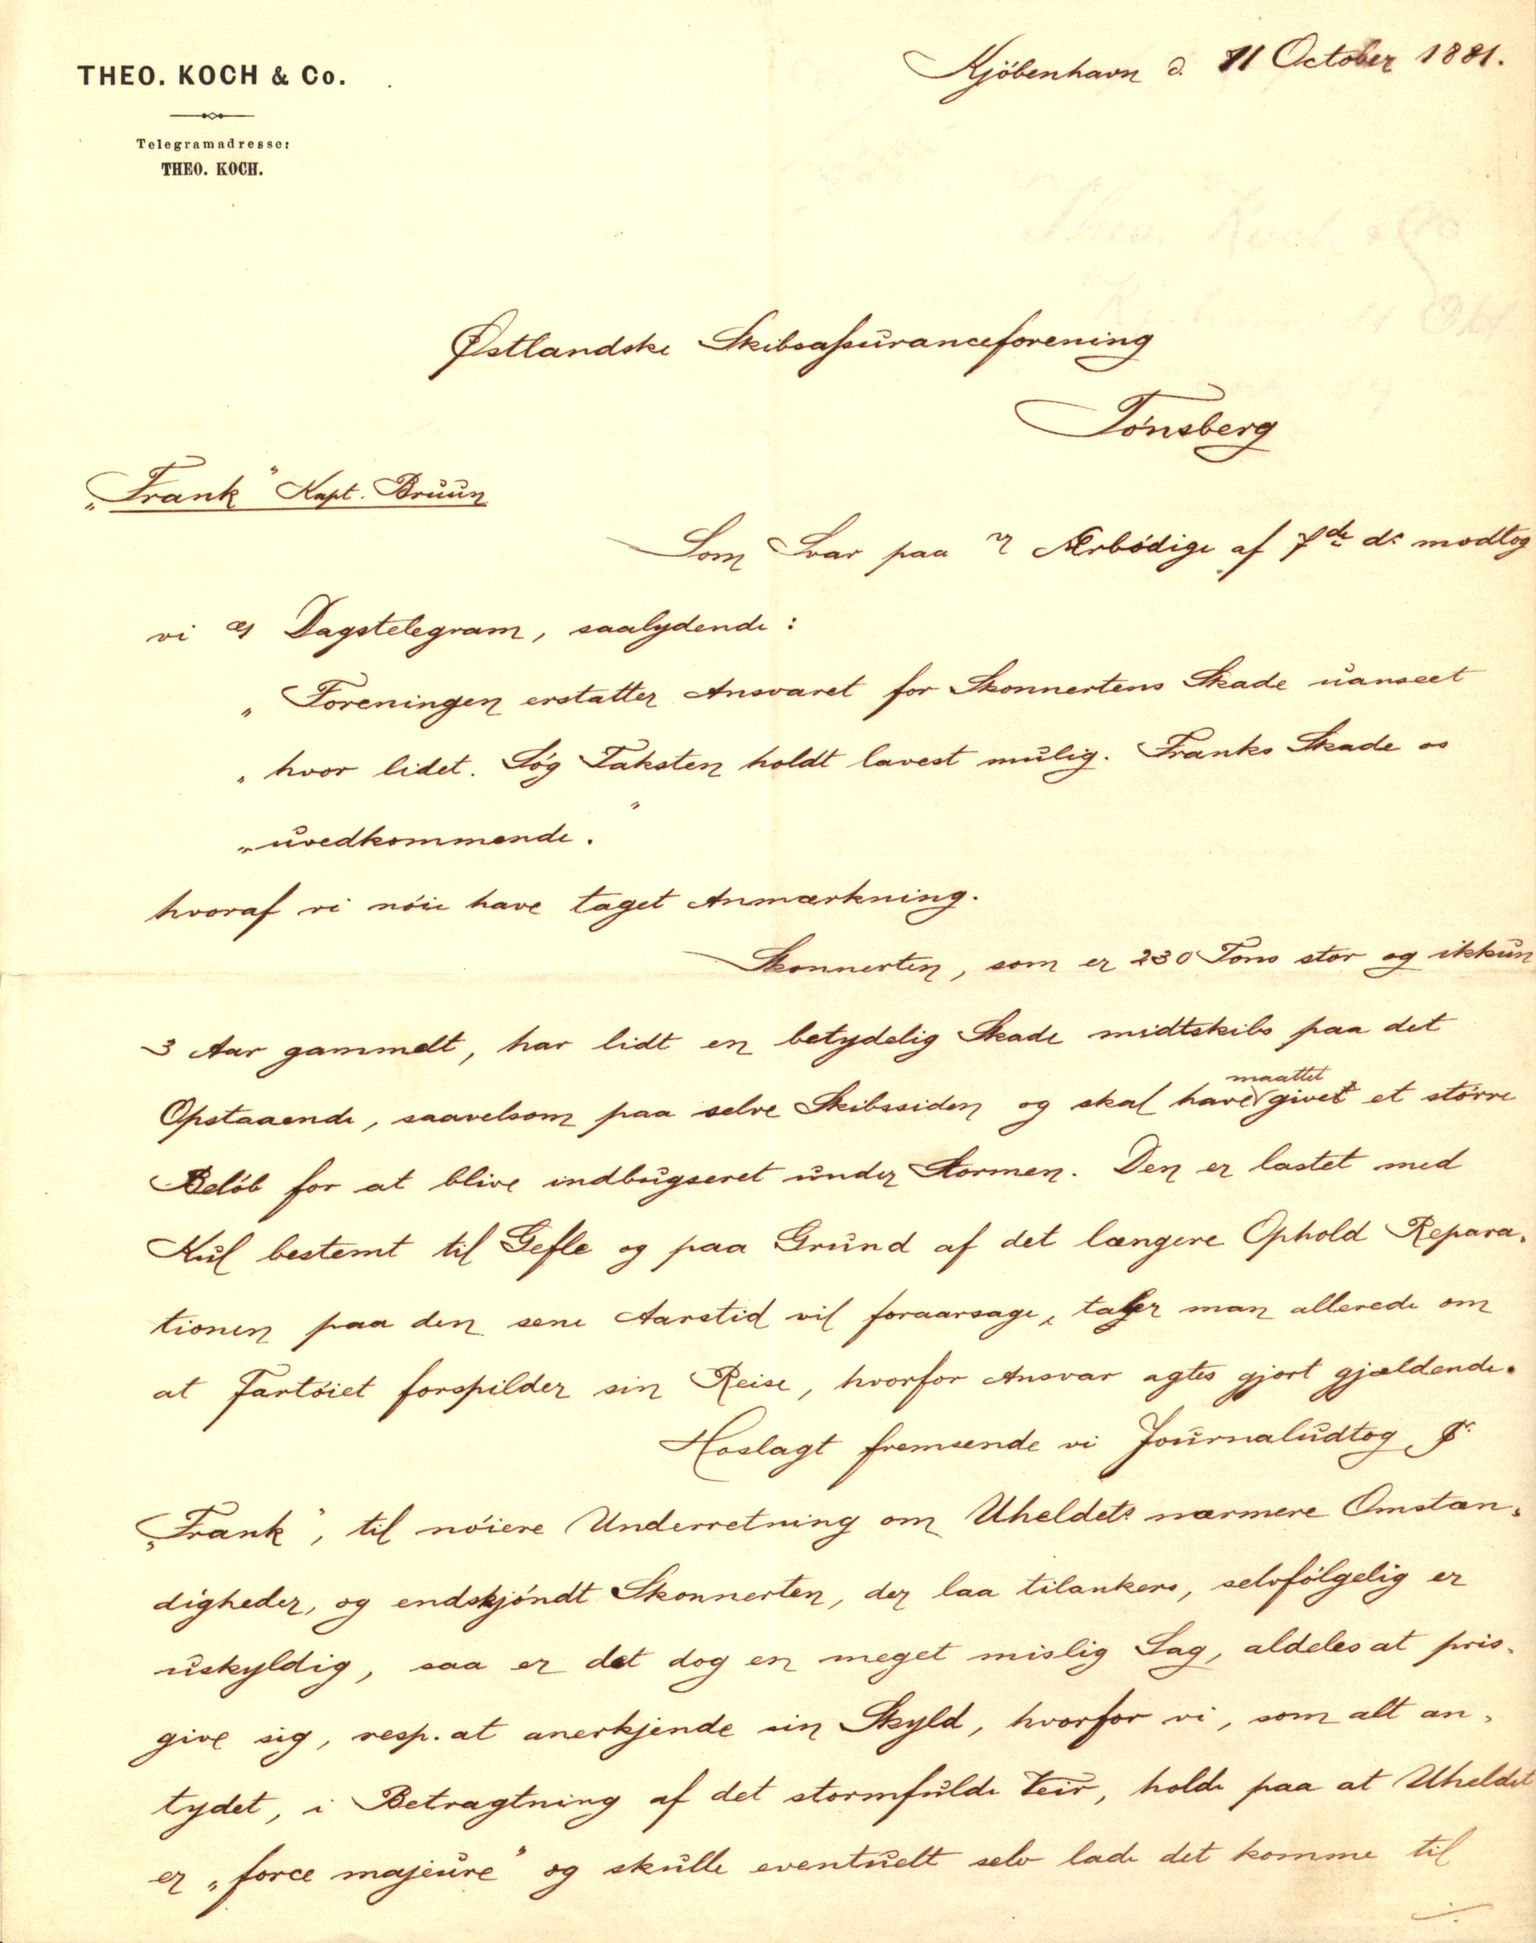 THEO. KOCH & Co.
Telegramadresse:
THEO. KOCH.
Kjöbenhavn d. 11 October 1881.
Østlandske Skibsassuranceforening
Tönsberg
„Frank" Kapt. Bruun
Som Svar paa Ærbödige af 7de ds modtog
vi Dagstelegram, saalydende:
„ Foreningen erstatter Ansvaret for Skonnertens Skade uanseet
„ hvor lidet. Søg Taksten holdt lavest mulig. Franks Skade os
„ uvedkommende."
hvoraf vi nöie have taget Anmærkning.
Skonnerten, som er 230 Tons stor og ikkun
3 Aar gammelt, har lidt en betydelig Skade midtskibs paa det
Opstaaende, saavelsom paa selve Skibssiden og skal have maattet givet et större
Belöb for at blive indbugseret under Stormen. Den er lastet med
Kul bestemt til Gefle og paa Grund af det længere Ophold Repara-
tionen paa den sene Aarstid vil foraarsage, taler man allerede om
at Fartöiet forspilder sin Reise, hvorfor Ansvar agtes gjort gjældende.
Hoslagt fremsende vi Journaludtog
„Frank", til nöiere Underretning om Uheldets nærmere Omstæn-
digheder, og endskjöndt Skonnerten, der laa tilankers, selvfölgelig er
uskyldig, saa er det dog en meget mislig Sag, aldeles at pris-
give sig, resp. at anerkjende sin Skyld, hvorfor vi, som alt an-
tydet, i Betragtning af det stormfulde Veir, holde paa at Uheldet
er „force majeure" og skulle eventuelt selv lade det komme til